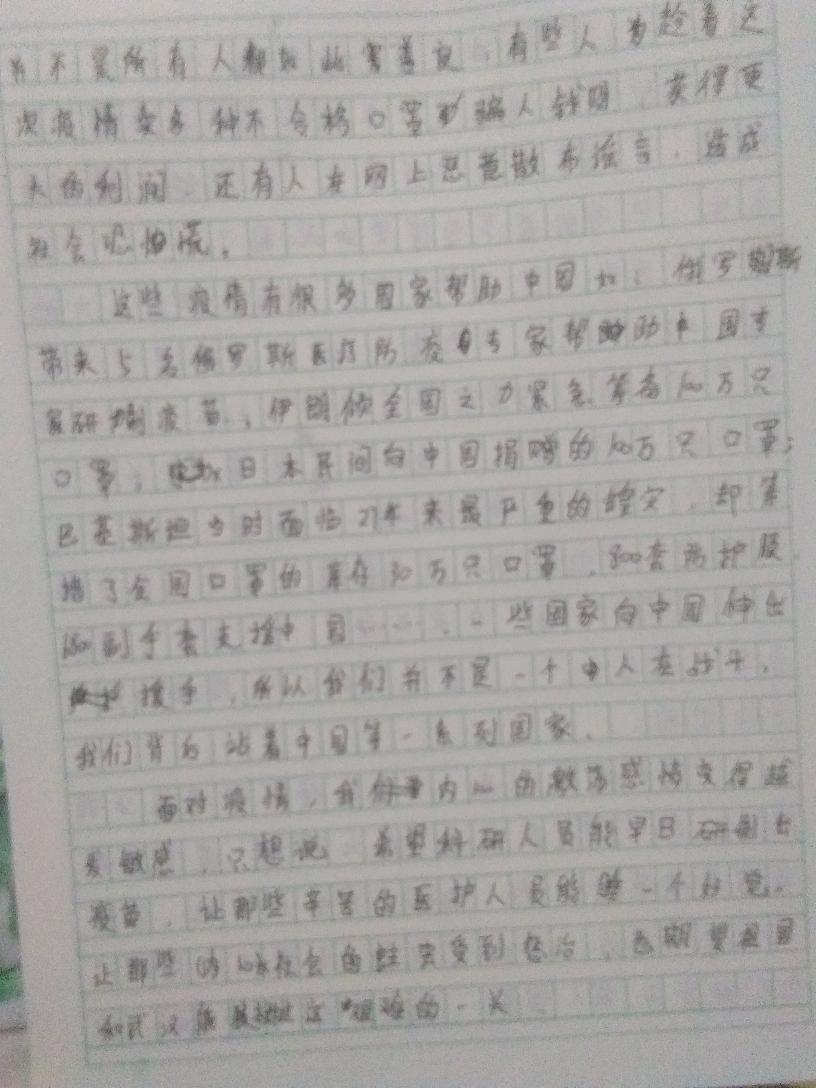 并不是所有人都如此善良,有些人为趁着这
次疫情卖各种不合格口罩骗人钱财,获得更
大的利润,还有人在网上恶意散布谣言,造成
社会恐慌。
这些疫情有很多国家帮助中国如:俄罗斯
带来5名俄罗斯医疗防疫专家帮助中国专
家研制疫苗;伊朗倾全国之力紧急筹备100万只
口罩;日本民间向中国捐赠的100万只口罩;
巴基斯坦当时面临27年来最严重的蝗灾,却筹
措了全国口罩的库存30万只口罩,800套防护服
副手套支援中国……,一些国家向中国伸出
援手,所以我们并不是一个人在战斗,
我们背后站着中国等一系列国家。
面对疫情,我内心的激荡感情变得越
发敏感,只想说,希望科研人员能早日研制出
疫苗,让那些辛苦的医护人员能睡一个好觉。
让那些社会的蛀虫受到惩治,也期望祖国
和武汉能这艰难的一关。